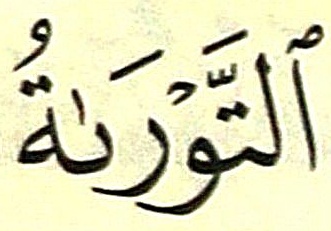 ٱلتَّوْرَىٰةُ